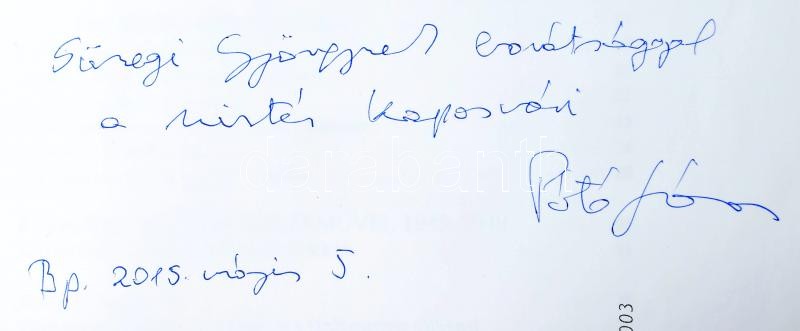 Süregi Györgynek barátsággal
a Kaposvári
Pótó János
Bp. 2015. május 5.
darabanth
003